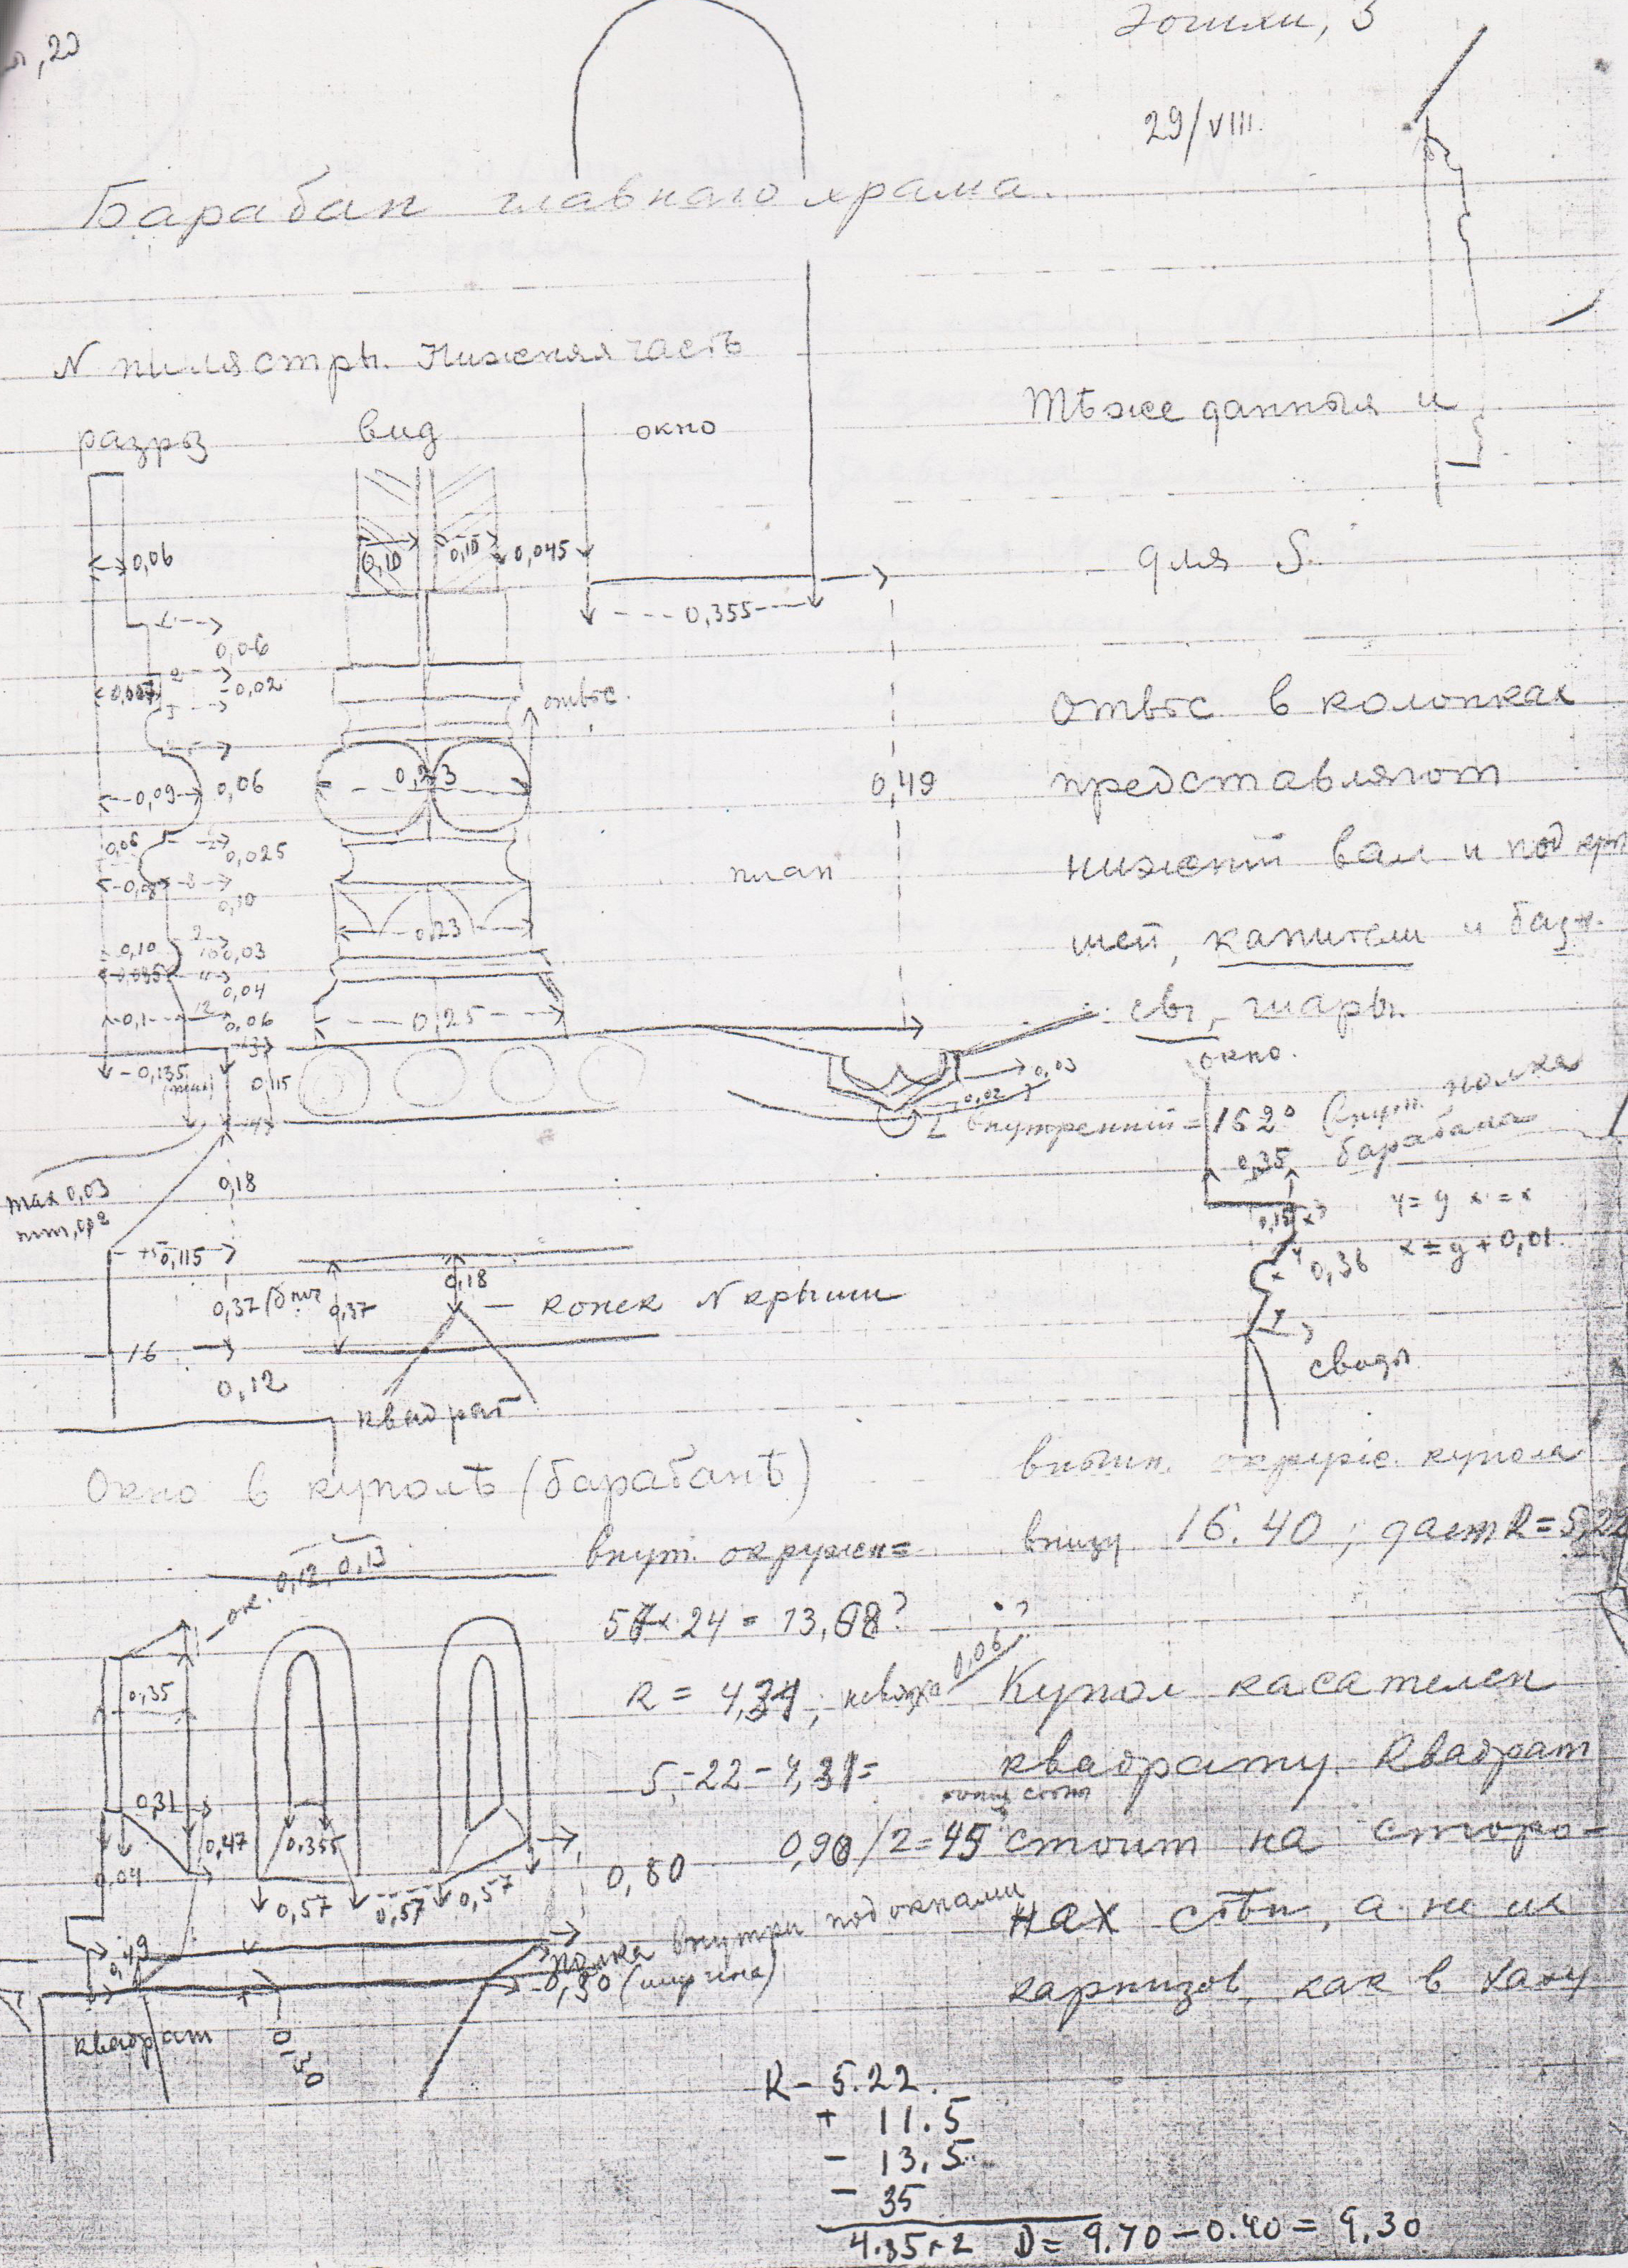 Зошли, 3
, 20
29/VIII.
Барабан главнаго храма.
N пилястры. Нижняя часть
разрѣз
вид
окно
Тѣже данныя и
для S.
0,06
0,10
0,10
0,045
0,355
0,06
0,02
отвѣс.
Отвѣс в колонках
представляют
нижний вал и под
шей, капители и
-сы, - шары.
0,09
0,06
0,23
0,49
0,06
0,025
0,08
0,10
план
0,10
0,03
0,23
0,04
0,1
0,06
0,25
0,135
0,115
0,03
0,02
внутренний = 162°
окно.
внут. полка
барабана
0,35
y = y x = x
x = y + 0,01
0,36
своды
max 0,03
0,18
0,115
0,37
0,37
0,18
конек N крыши
16
0,12
квадрат
Окно в куполѣ (барабанѣ)
внѣшн. окруж. купола
внизу 16.40; дает R = 5,22
ок. 0,12, 0,13
внут. окружен =
57 × 24 = 13,68?
R = 4,31; невязка 0,06?
5,22 - 4,31 =
0,90/2 = 45
Купол касателен
квадрату. Квадрат
стоит на сторо-
нах стѣн, а не на
карнизов, как в Хаху
0,35
0,31
0,47
0,355
0,04
0,57
0,57
0,57
0,80
0,49
полка внутри под окнами
0,90 (ширина)
квадрат
0,50
R - 5.22.
+ 11.5
- 13,5
- 35
4.35 × 2 D = 9.70 - 0.40 = 9,30